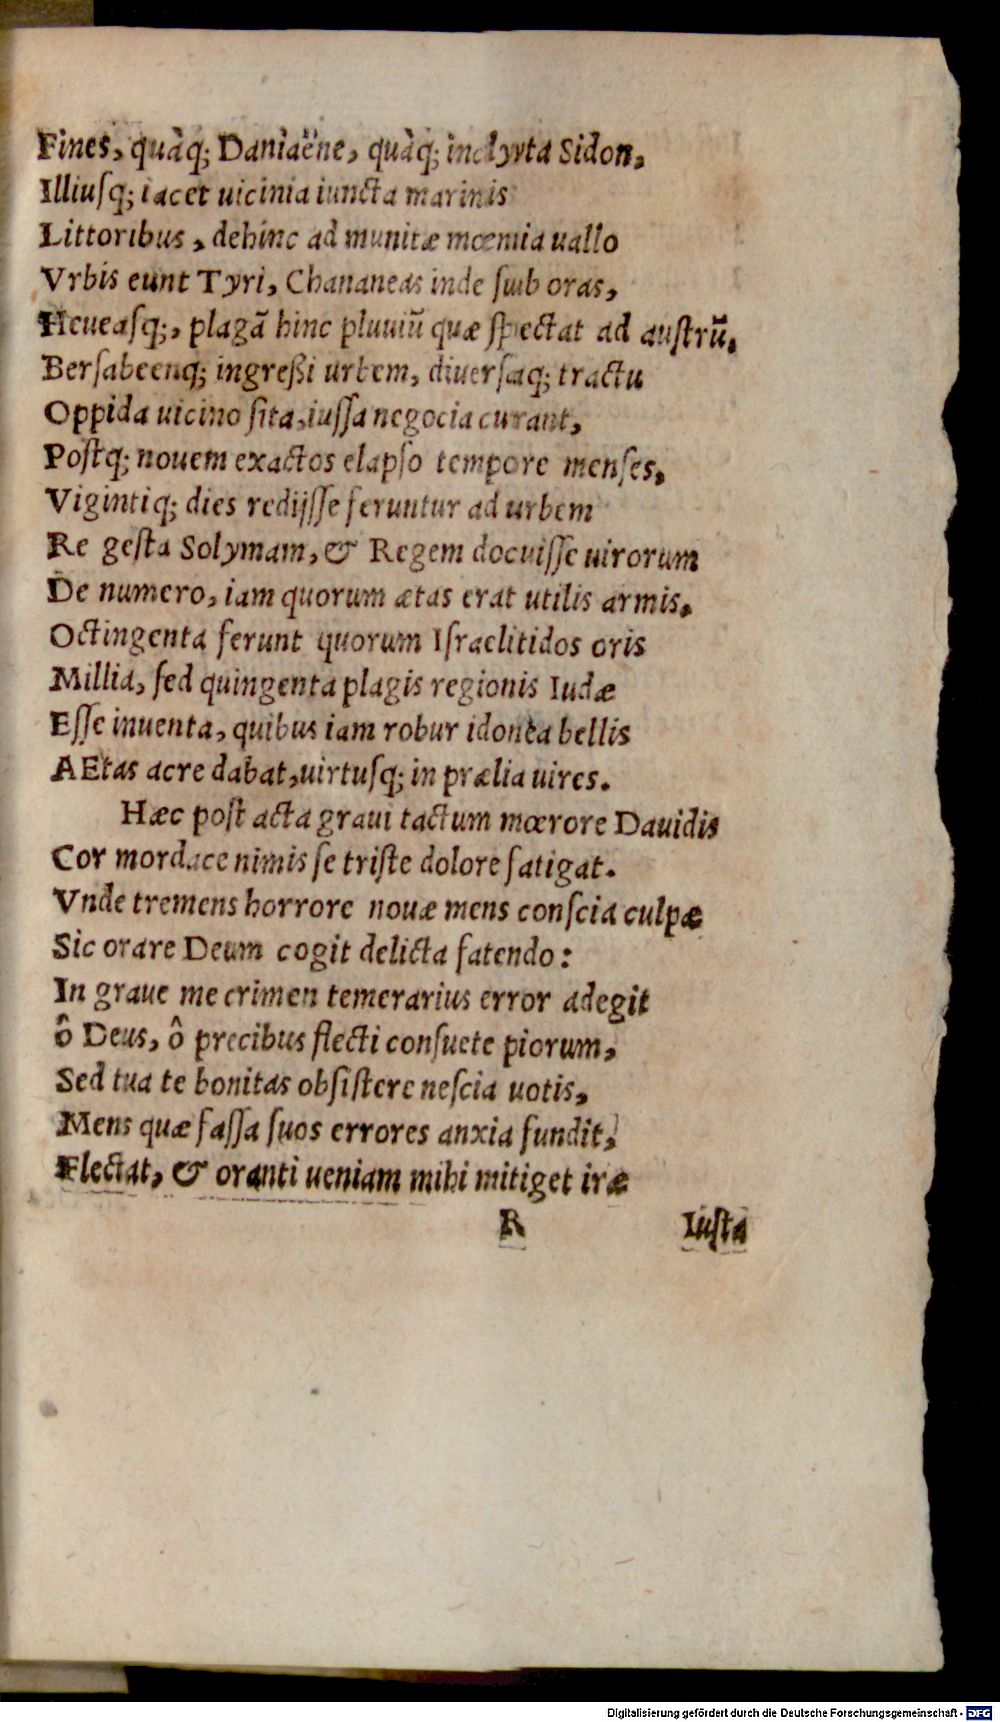 Fines, quàq; Daniaëne, quàq; inclyta Sidon,
Illiusq; iacet uicinia iuncta marinis
Littoribus, dehinc ad munitæ mœnia uallo
Vrbis eunt Tyri, Chananeas inde sub oras,
Heueasq;, plagā hinc pluuiū quæ spectat ad austrū,
Bersabeenq; ingreßi urbem, diuersaq; tractu
Oppida uicino sita, iussa negocia curant,
Postq; nouem exactos elapso tempore menses,
Vigintiq; dies redijsse feruntur ad urbem
Re gesta Solymam, & Regem docuisse uirorum
De numero, iam quorum ætas erat utilis armis,
Octingenta ferunt quorum Israelitidos oris
Millia, sed quingenta plagis regionis Iudæ
Esse inuenta, quibus iam robur idonea bellis
AEtas acre dabat, uirtusq; in prælia uires.
Hæc post acta graui tactum mœrore Dauidis
Cor mordace nimis se triste dolore fatigat.
Vnde tremens horrore nouæ mens conscia culpæ
Sic orare Deum cogit delicta fatendo:
In graue me crimen temerarius error adegit
ô Deus, ô precibus flecti consuete piorum,
Sed tua te bonitas obsistere nescia uotis,
Mens quæ fassa suos errores anxia fundit,
Flectat, & oranti ueniam mihi mitiget iræ
R Iusta
Digitalisierung gefördert durch die Deutsche Forschungsgemeinschaft - DFG